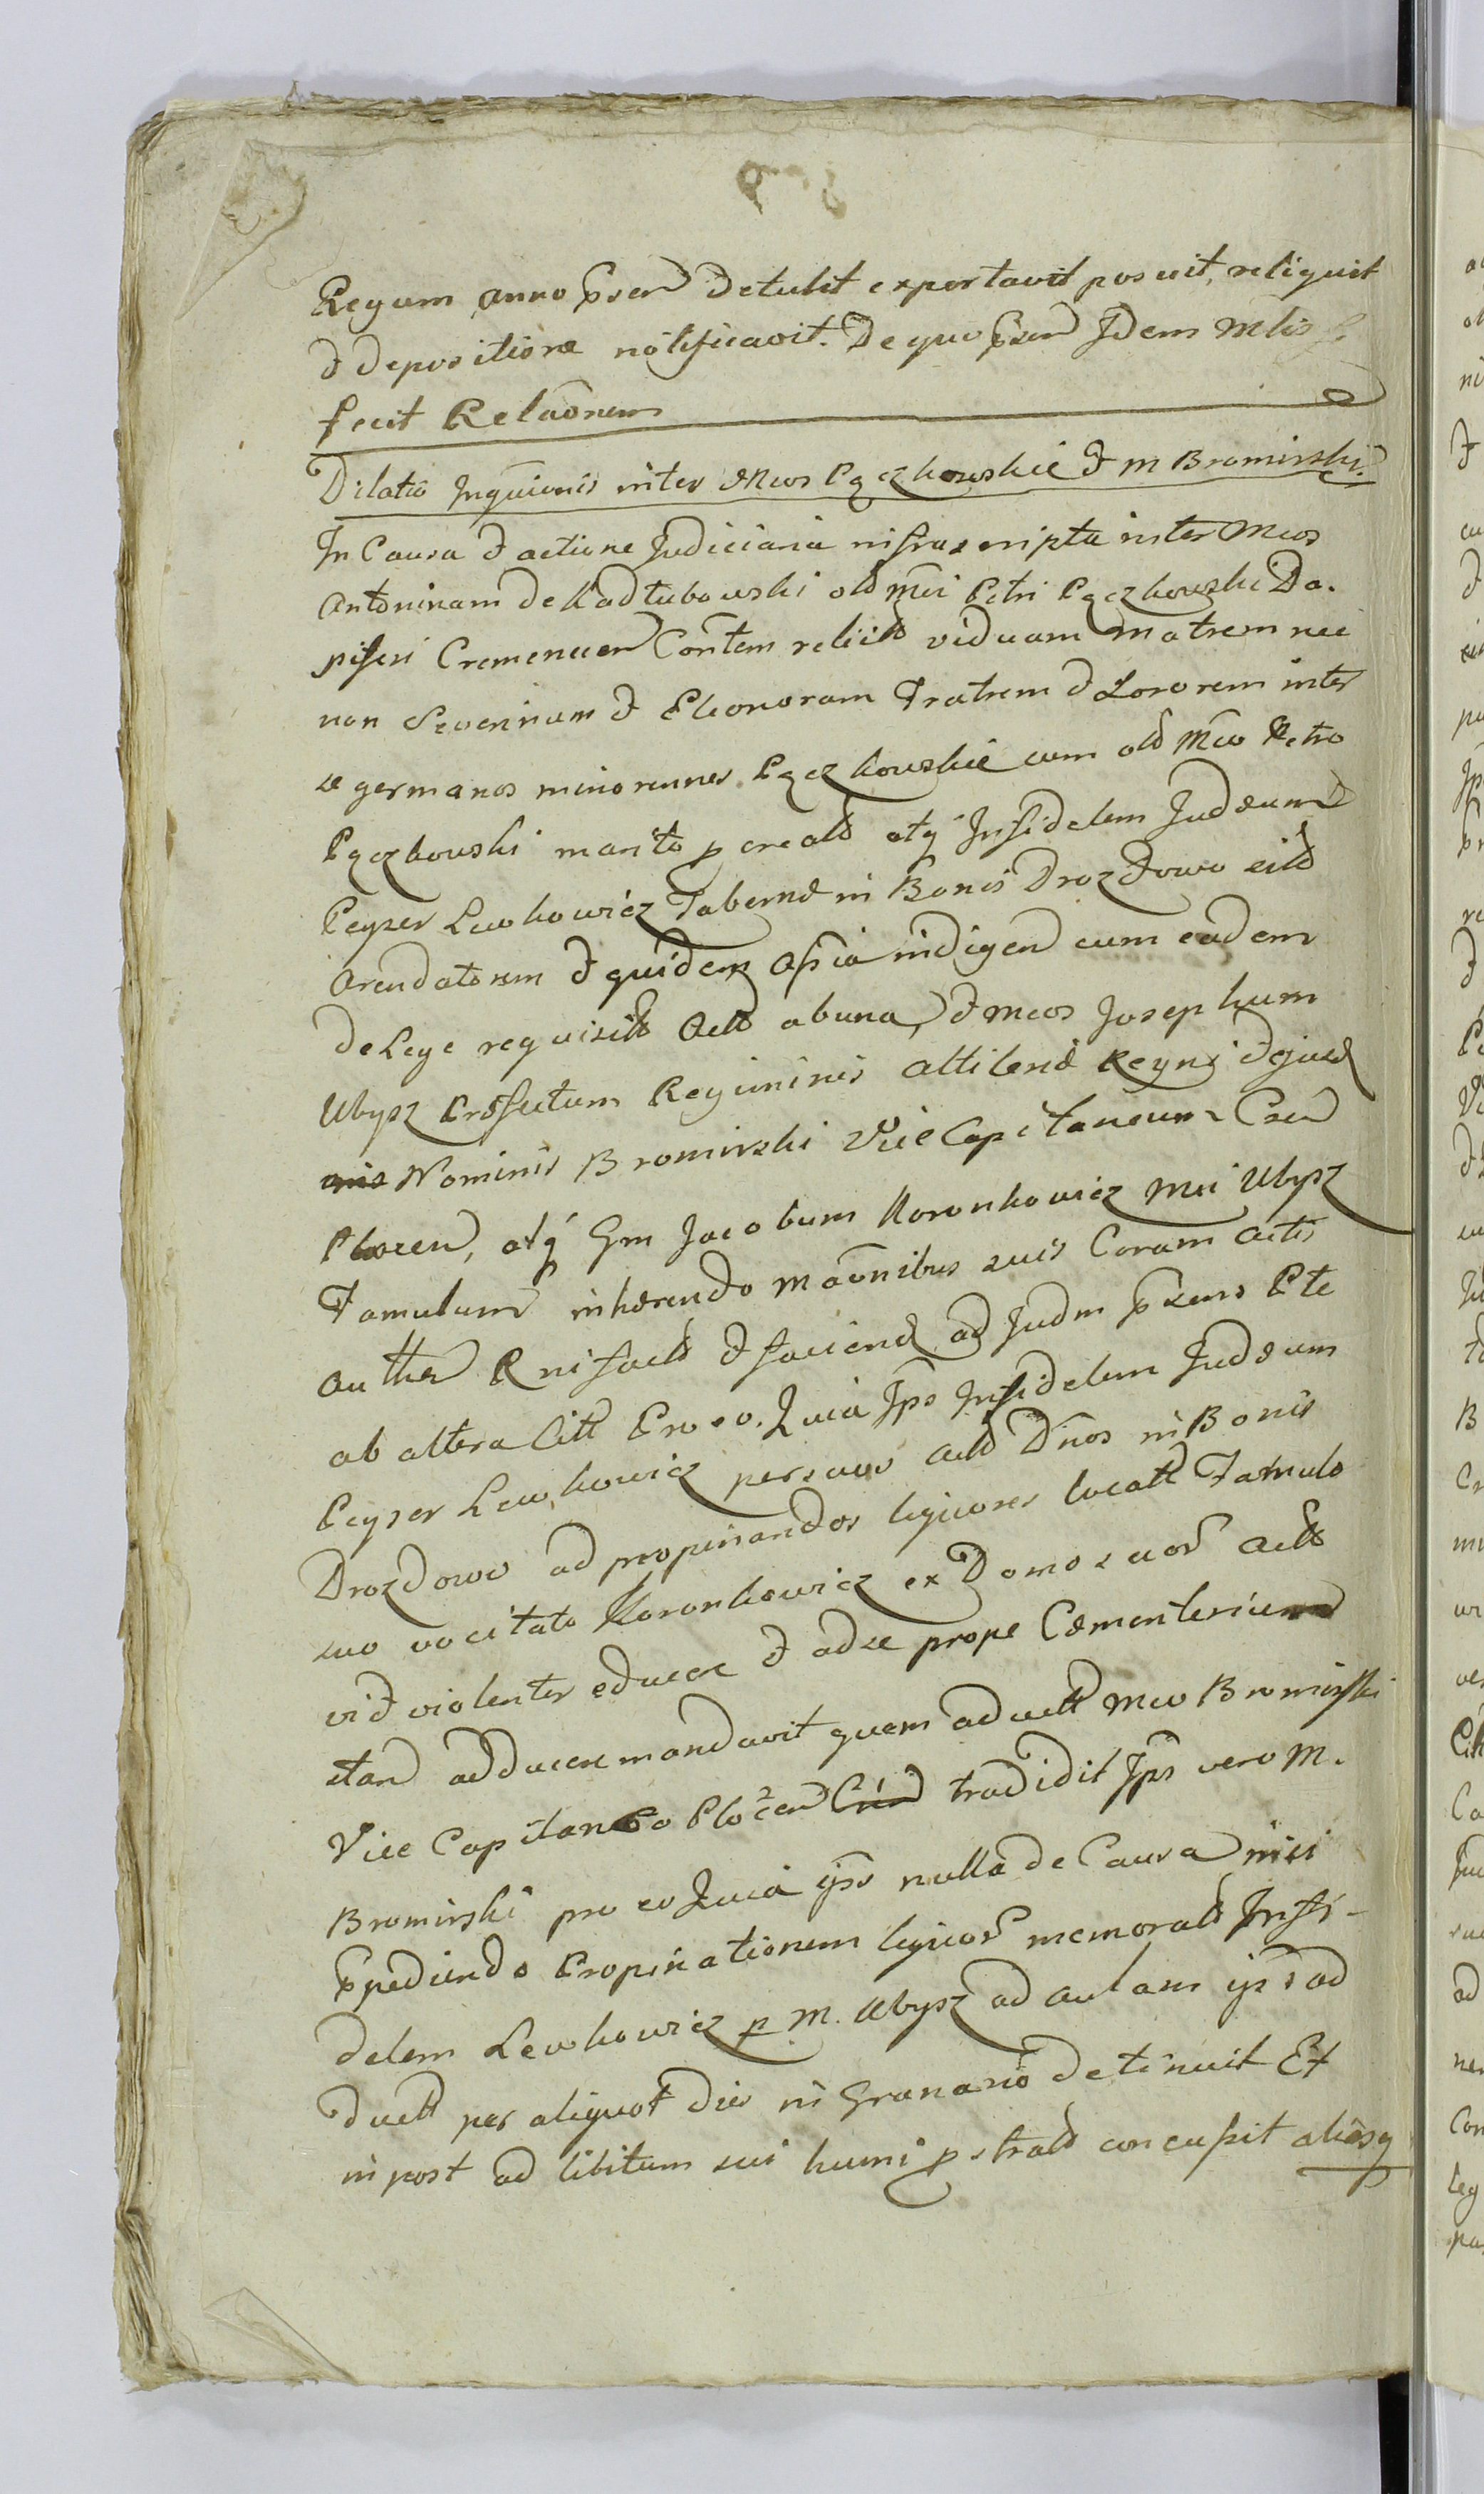 Regum anno pser detulit exportavit posuit, reliquit
et depositione notificavit. De quo pser Idem Mlis
fecit Relaonem
Dilatio Inqui͠onis inter Mcos Pączkowskie et M Bromirski.
In Causa et actione Judiciaria infrascripta inter Mcos
Antoninam de Kadłubowski olb Mci Petri Pączkowski Da.
piferi Cremenecen Contem relictb viduam Matrem nec
non Severinum et Eleonoram Fratrem et Sororem inter
se germanos minorennes Pączkowskie cum olb Mco Petro
Pączkowski marito p creatb atq Infidelem Judæum
Peyzer Lewkowicz Tabernæ in Bonis Drozdowo sitb
Arendatorem et quidem Assia indigen cum eadem
de Lege requisitb Actb ab una, et Mcos Josephum
Ubysz Præfectum Regiminis Attilerid Regni et
Nominis Bromirski Vice Capitaneum Csen
Plocen, atq Gm Jacobum Koronkowicz Mci Ubysz
Famulum inhærendo Ma͠onibus suis Coram Actis
Authen R nifactb et faciend ad Judm præsens Pte
ab altera Citt Pro eo. Quia Ips Infidelem Judæum
Peyzer Lewkowicz per suos Actb D͠nos in Bonis
Drozdowo ad propinandos liquores locatt Famulo
suo vocitato Koronkowicz ex Domo suor Actb
vi et violenter educere et ad se prope Cæmenterium
stan adducere mandavit quem aductt Mco Bromirski
Vice Capitaneo Plocen tradidit Ips vero M.
Bromirski pro eo Quia ipse nulla de Causa nisi
Expediendo Propinationem liquor memoratb Infi-
delem Lewkowicz p M. Ubysz ad aulam ips ad
ductt per aliquot dies in Granario detinuit Et
in post ad libitum sui humi p stratb concussit aliosq